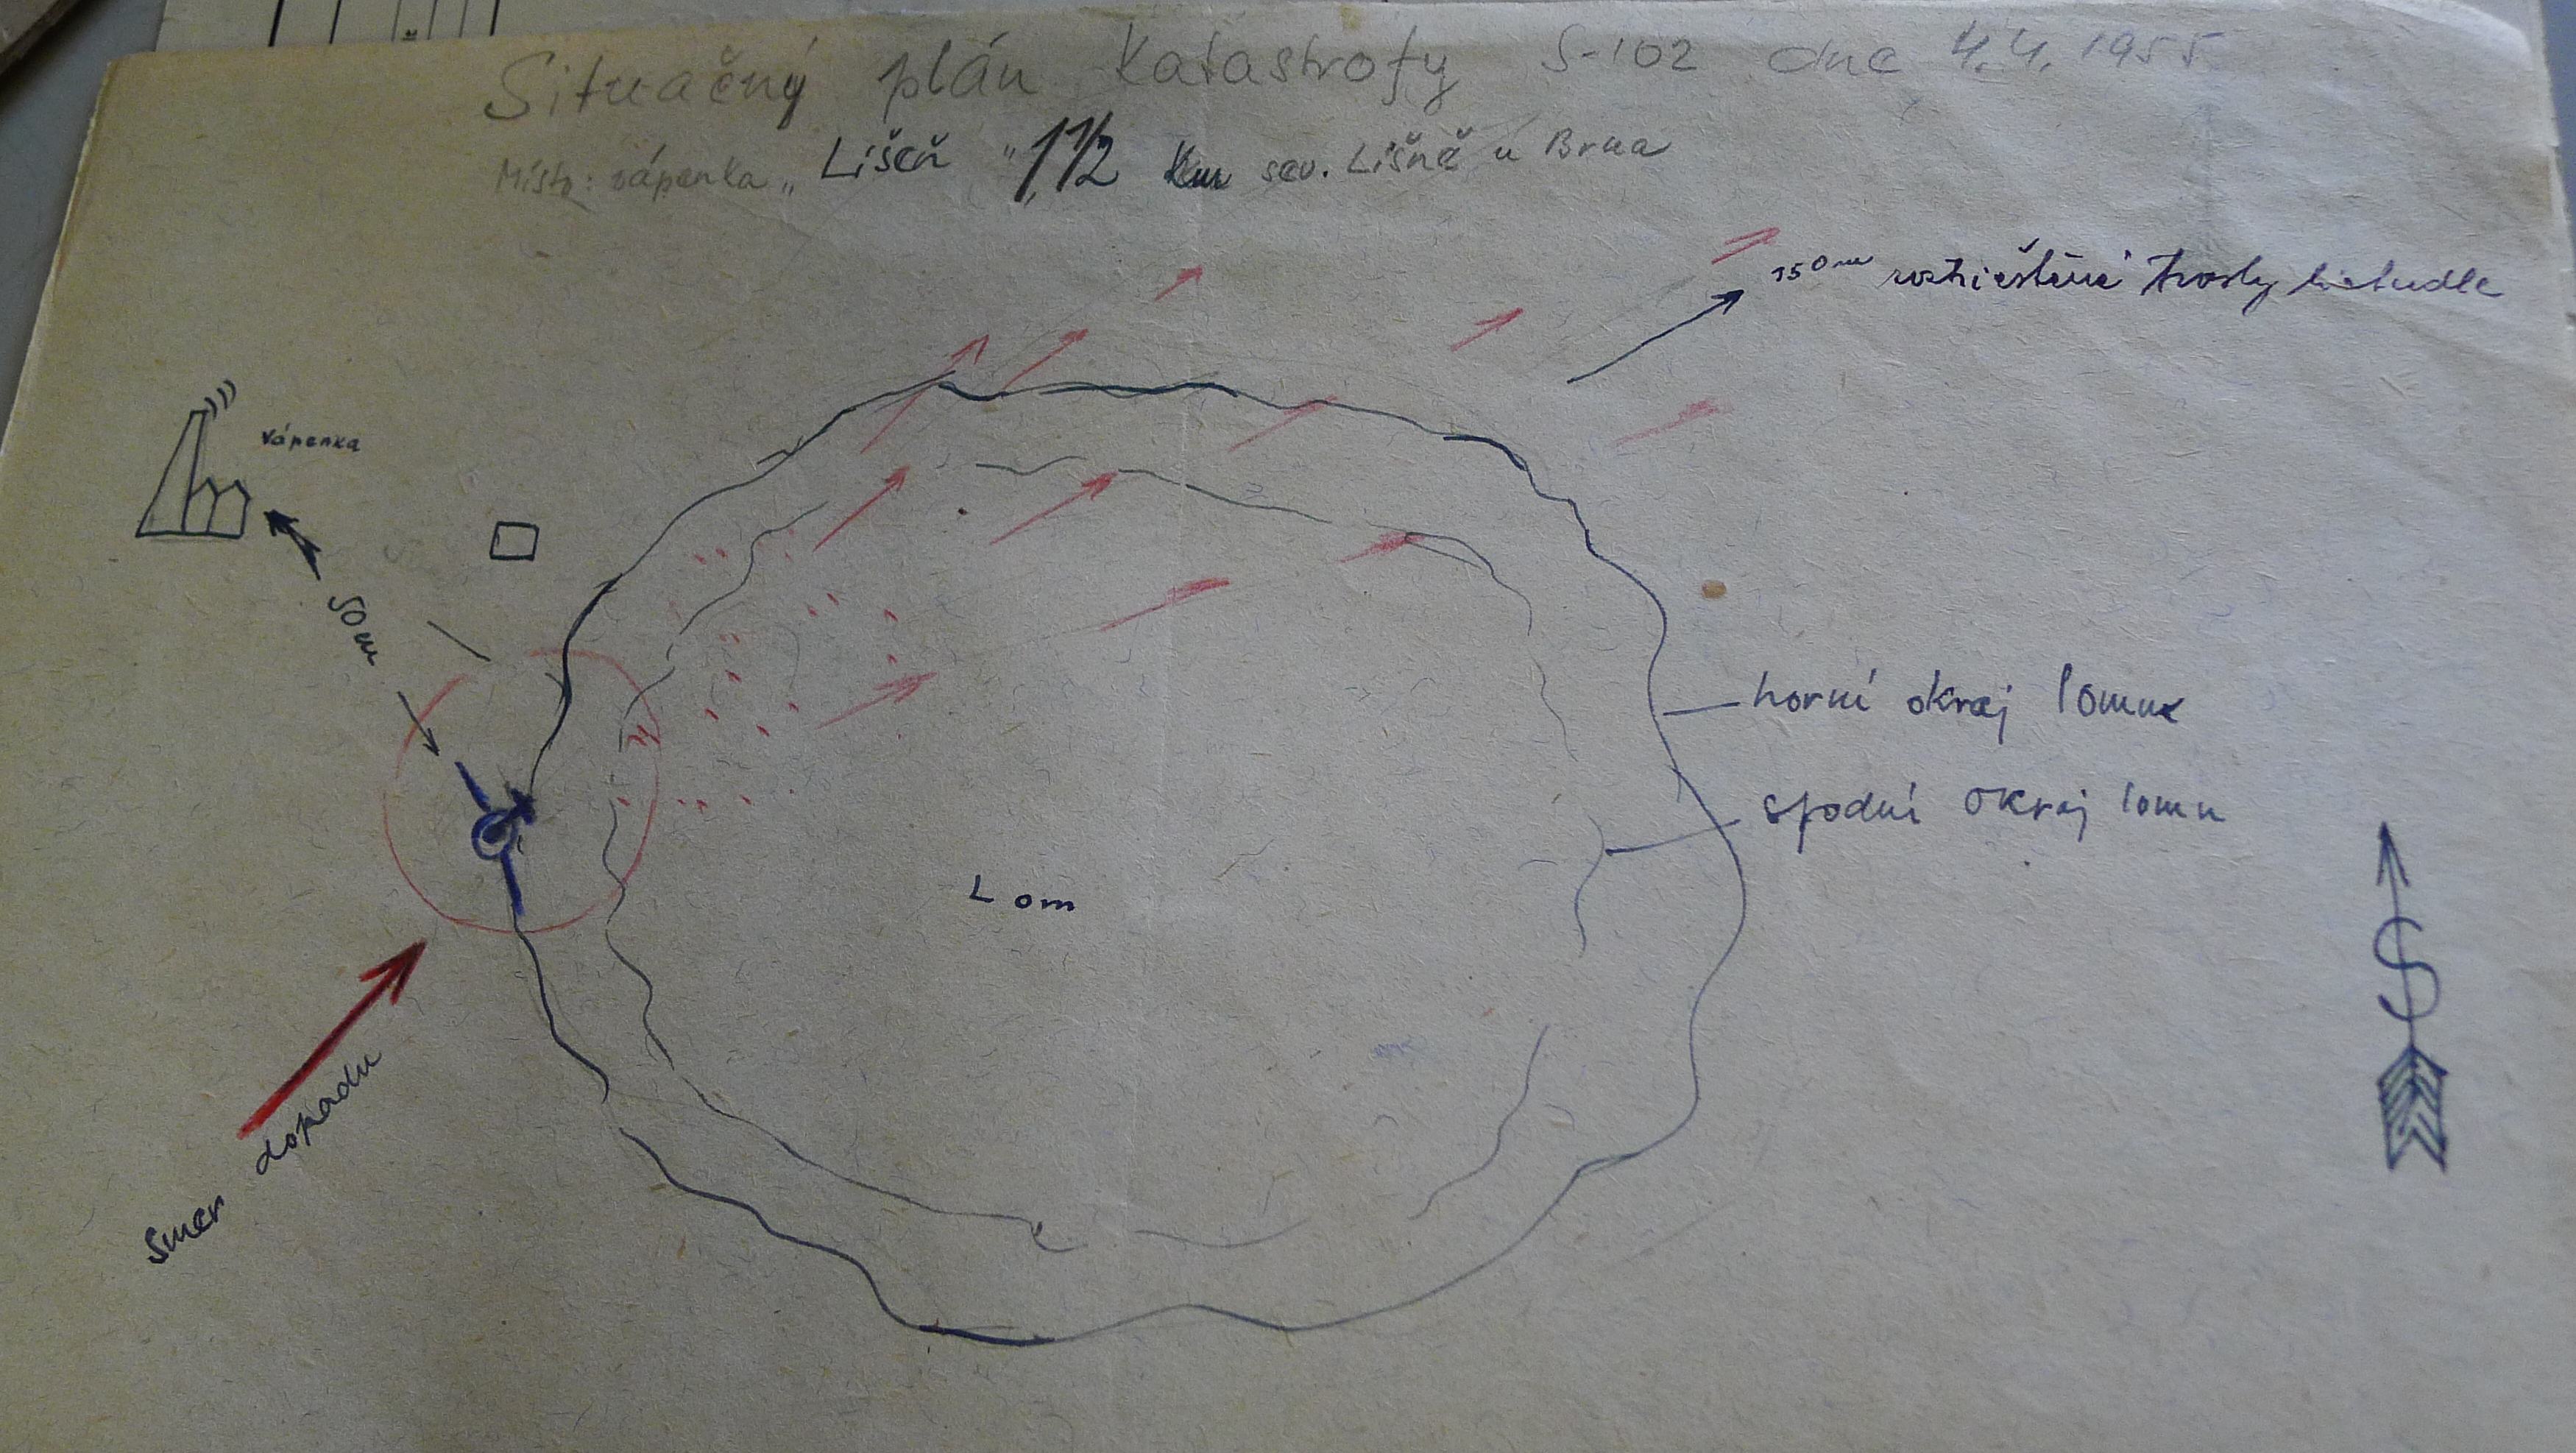 Situačný plán Katastrofy S-102 dne 4.4.1955
Místo: vápenka „Lišeň" 1 1/2 Km sev. Lišně u Brna
150m roztrieštěné trosky lietadle
Vápenka
50m
horní okraj lomu
spodní okraj lomu
Lom
S
Smer dopadu